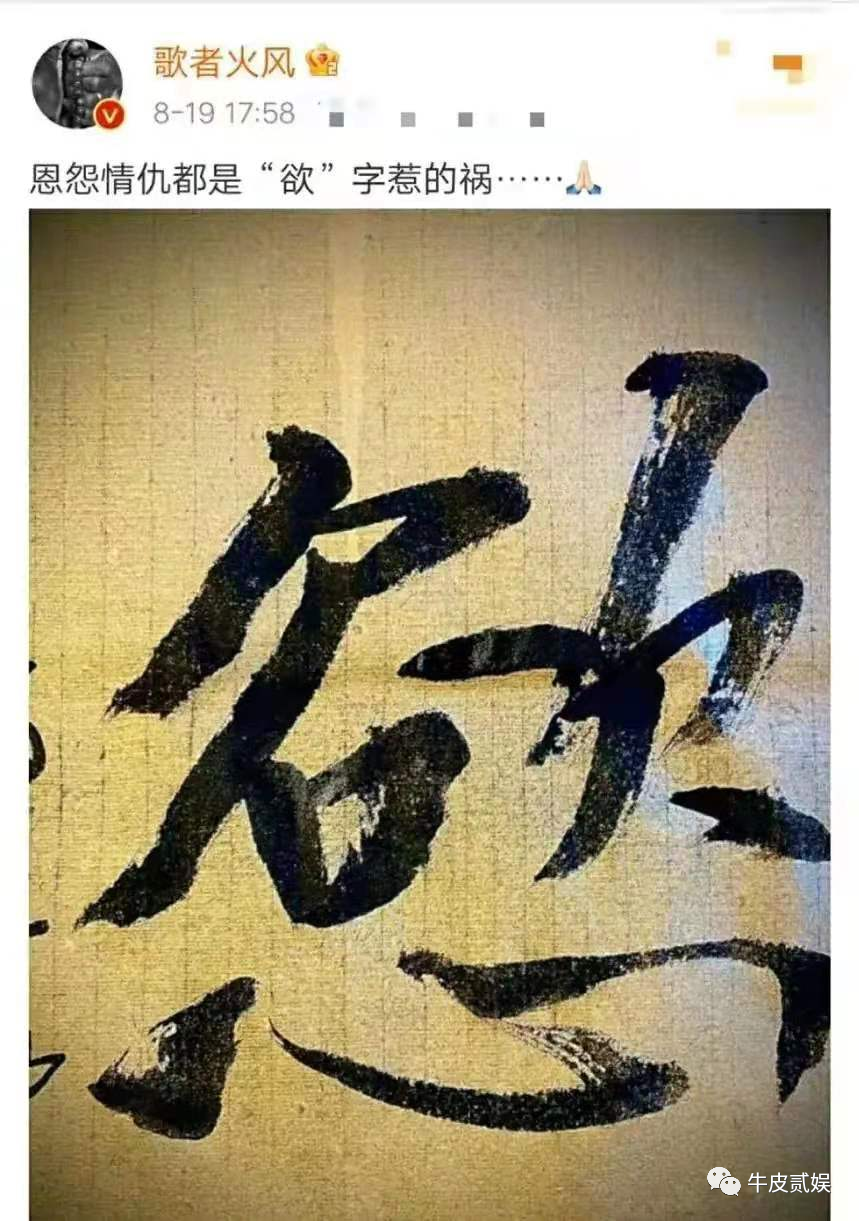 歌者火风
8-19 17:58
恩怨情仇都是“欲”字惹的祸……🙏🏻
慾
牛皮贰娱